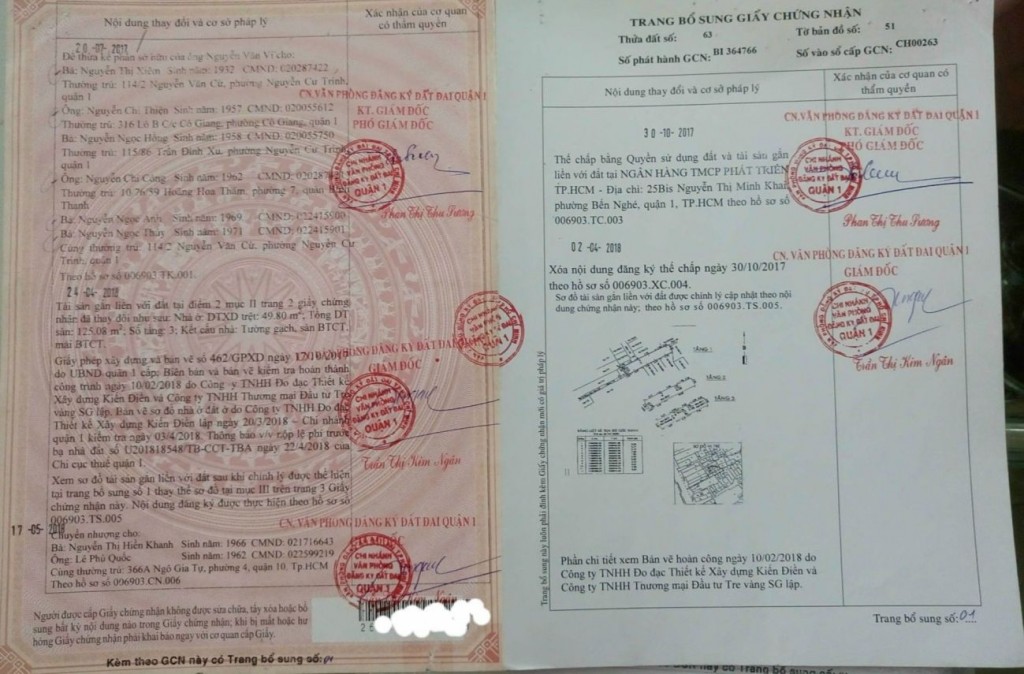 Nội dung thay đổi và cơ sở pháp lý
Xác nhận của cơ quan
có thẩm quyền
20-07-2017
Để thừa kế phần sở hữu của ông Nguyễn Văn Vi cho:
Bà: Nguyễn Thị Xiêm Sinh năm: 1932 CMND: 020287422
Thường trú: 114/2 Nguyễn Văn Cừ, phường Nguyễn Cư Trinh,
quận 1
Ông: Nguyễn Chí Thiện Sinh năm: 1957 CMND: 020055612
Thường trú: 316 Lô B C/c Cô Giang, phường Cô Giang, quận 1
Bà: Nguyễn Ngọc Hồng Sinh năm: 1958 CMND: 020055750
Thường trú: 115/86 Trần Đình Xu, phường Nguyễn Cư Trinh,
quận 1
Ông: Nguyễn Chí Công Sinh năm: 1962 CMND:
Thường trú: Hoàng Hoa Thám, phường 7, quận
Thạnh
Bà: Nguyễn Ngọc Anh Sinh năm: 1969 CMND: 022415900
Bà: Nguyễn Ngọc Thúy Sinh năm: 1971 CMND: 022415901
Cùng thường trú: 114/2 Nguyễn Văn Cừ, phường Nguyễn Cư
Trinh, quận 1
Theo hồ sơ số 006903.TK.001.
CN.VĂN PHÒNG ĐĂNG KÝ ĐẤT ĐAI QUẬN 1
KT. GIÁM ĐỐC
PHÓ GIÁM ĐỐC
CHI NHÁNH
VĂN PHÒNG
ĐĂNG KÝ ĐẤT ĐAI
QUẬN 1
Phan Thị Thu Sương
24-04-2018
Tài sản gắn liền với đất tại điểm 2 mục II trang 2 giấy chứng
nhận đã thay đổi như sau: Nhà ở: DTXD trệt: 49.80 m²; Tổng DT
sàn: 125.08 m²; Số tầng: 3; Kết cấu nhà: Tường gạch, sàn BTCT,
mái BTCT.
Giấy phép xây dựng và bản vẽ số 462/GPXD ngày
do UBND quận 1 cấp; Biên bản và bản vẽ kiểm tra hoàn thành
công trình ngày 10/02/2018 do Công ty TNHH Đo đạc Thiết kế
Xây dựng Kiến Điền và Công ty TNHH Thương mại Đầu tư Tre
vàng SG lập. Bản vẽ sơ đồ nhà ở đất ở do Công ty TNHH Đo đạc
Thiết kế Xây dựng Kiến Điền lập ngày 20/3/2018 – Chi nhánh
quận 1 kiểm tra ngày 03/4/2018. Thông báo v/v nộp lệ phí trước
bạ nhà đất số U201818548/TB-CCT-TBA ngày 22/4/2018 của
Chi cục thuế quận 1.
Xem sơ đồ tài sản gắn liền với đất sau khi chỉnh lý được thể hiện
tại trang bổ sung số 1 thay thế sơ đồ tại mục III trên trang 3 Giấy
chứng nhận này. Nội dung đăng ký được thực hiện theo hồ sơ số
006903.TS.005
CN.VĂN PHÒNG ĐĂNG KÝ ĐẤT ĐAI QUẬN 1
GIÁM ĐỐC
CHI NHÁNH
VĂN PHÒNG
ĐĂNG KÝ ĐẤT ĐAI
QUẬN 1
Trần Thị Kim Ngân
17-05-2018
Chuyển nhượng cho:
Bà: Nguyễn Thị Hiền Khanh Sinh năm: 1966 CMND: 021716643
Ông: Lê Phú Quốc Sinh năm: 1962 CMND: 022599219
Thường trú: 366A Ngô Gia Tự, phường 4, quận 10, Tp.HCM
Theo hồ sơ số 006903.CN.006
CN. VĂN PHÒNG ĐĂNG KÝ ĐẤT ĐAI QUẬN 1
CHI NHÁNH
VĂN PHÒNG
ĐĂNG KÝ ĐẤT ĐAI
QUẬN 1
Người được cấp Giấy chứng nhận không được sửa chữa, tẩy xóa hoặc bổ
sung bất kỳ nội dung nào trong Giấy chứng nhận; khi bị mất hoặc hư
hỏng Giấy chứng nhận phải khai báo ngay với cơ quan cấp Giấy.
Kèm theo GCN này có Trang bổ sung số: 01
TRANG BỔ SUNG GIẤY CHỨNG NHẬN
Thửa đất số: 63 Tờ bản đồ số: 51
Số phát hành GCN: BI 364766 Số vào sổ cấp GCN: CH00263
Nội dung thay đổi và cơ sở pháp lý
Xác nhận của cơ quan có
thẩm quyền
30-10-2017
Thế chấp bằng Quyền sử dụng đất và tài sản gắn
liền với đất tại NGÂN HÀNG TMCP PHÁT TRIỂN
TP.HCM - Địa chỉ: 25Bis Nguyễn Thị Minh Khai,
phường Bến Nghé, quận 1, TP.HCM theo hồ sơ số
006903.TC.003
CN.VĂN PHÒNG ĐĂNG KÝ ĐẤT ĐAI QUẬN 1
KT. GIÁM ĐỐC
PHÓ GIÁM ĐỐC
CHI NHÁNH
VĂN PHÒNG
ĐĂNG KÝ ĐẤT ĐAI
QUẬN 1
Phan Thị Thu Sương
02-04-2018
Xóa nội dung đăng ký thế chấp ngày 30/10/2017
theo hồ sơ số 006903.XC.004.
Sơ đồ tài sản gắn liền với đất được chỉnh lý cập nhật theo nội
dung chứng nhận này; theo hồ sơ số 006903.TS.005.
CN. VĂN PHÒNG ĐĂNG KÝ ĐẤT ĐAI QUẬN 1
GIÁM ĐỐC
CHI NHÁNH
VĂN PHÒNG
ĐĂNG KÝ ĐẤT ĐAI
QUẬN 1
Trần Thị Kim Ngân
TẦNG 1
TẦNG 2
TẦNG 3
Trang bổ sung này luôn phải đính kèm Giấy chứng nhận mới có giá trị pháp lý
Phần chi tiết xem Bản vẽ hoàn công ngày 10/02/2018 do
Công ty TNHH Đo đạc Thiết kế Xây dựng Kiến Điền và
Công ty TNHH Thương mại Đầu tư Tre vàng SG lập.
Trang bổ sung số: 01